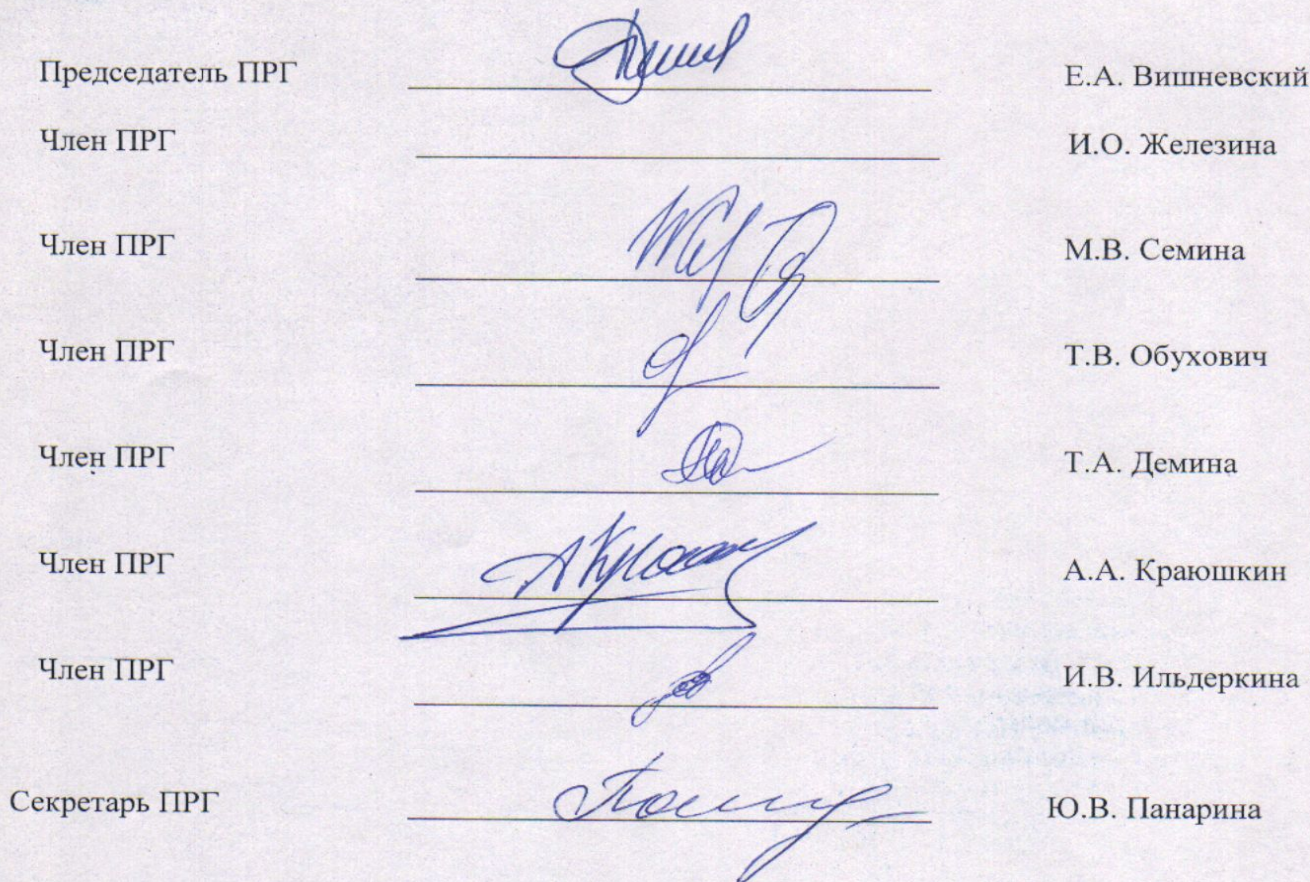 Председатель ПРГ Е.А. Вишневский
Член ПРГ И.О. Железина
Член ПРГ М.В. Семина
Член ПРГ Т.В. Обухович
Член ПРГ Т.А. Демина
Член ПРГ А.А. Краюшкин
Член ПРГ И.В. Ильдеркина
Секретарь ПРГ Ю.В. Панарина